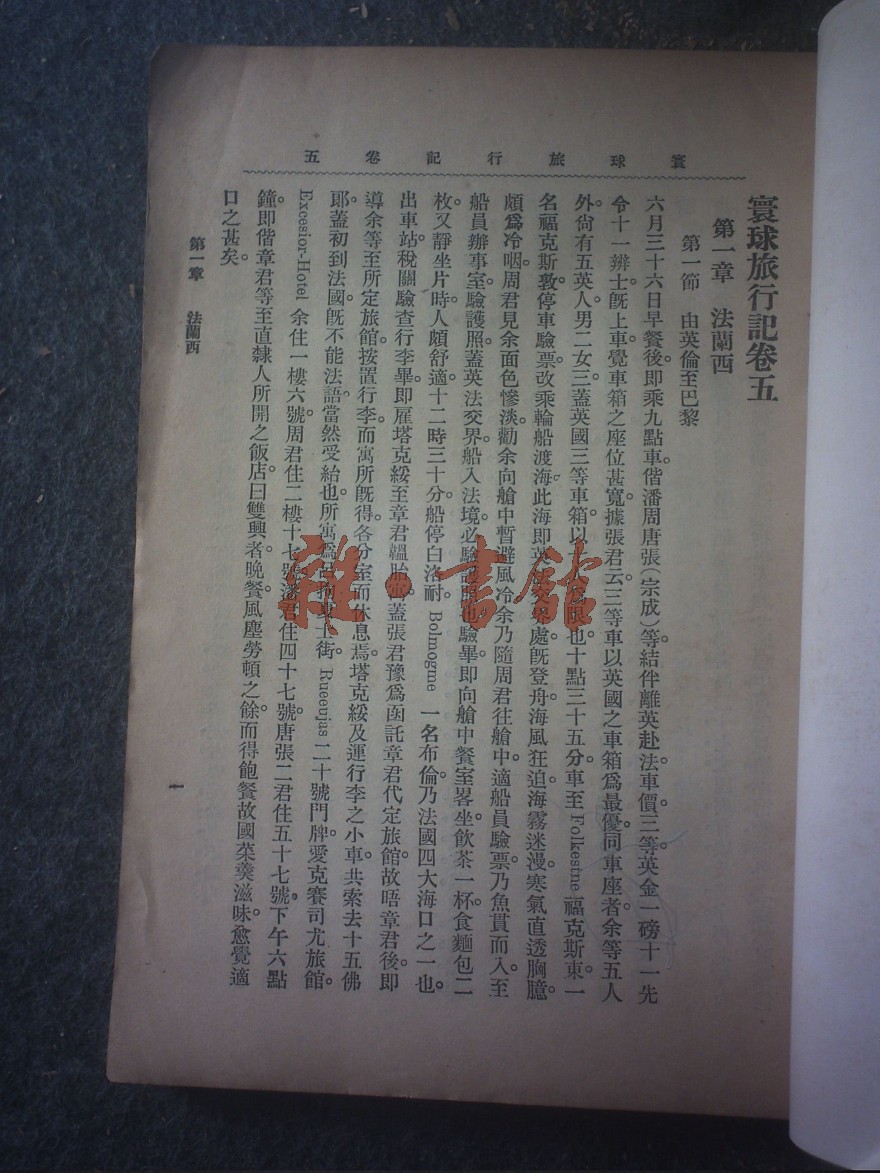 寰球旅行記卷五
寰球旅行記卷五
第一章　法蘭西
第一節　由英倫至巴黎
六月三十六日早餐後。即乘九點車。偕潘周唐張(宗成)等。結伴離英赴法。車價。三等。英金一磅十一先
令十一辨士。旣上車。覺車箱之座位甚寬。據張君云。三等車以英國之車箱爲最優。同車座者。余等五人
外。尙有五英人。男二女三。蓋英國三等車箱。以十人爲限也。十點三十五分。車至 Folkestne 福克斯東。一
名福克斯敦。停車驗票。改乘輪船渡海。此海即英法交界處。旣登舟。海風狂迫。海霧迷漫。寒氣直透胸臆。
頗爲冷咽。周君見余面色慘淡。勸余向艙中暫避風冷。余乃隨周君往艙中。適船員驗票。乃魚貫而入。至
船員辦事室。驗護照。蓋英法交界。船入法境。必驗護照也。驗畢。即向艙中餐室畧坐。飲茶一杯。食麵包二
枚。又靜坐片時。人頗舒適。十二時三十分。船停白洛耐。Bolmogme 一名布倫。乃法國四大海口之一也。
出車站。稅關驗查行李畢。即雇塔克綏至章君韞胎
蓋張君豫爲函託章君代定旅館。故晤章君後。即
導余等至所定旅館。按置行李。而寓所旣得。各分室而休息焉。塔克綏及運行李之小車。共索去十五佛
郞。蓋初到法國。旣不能法語。當然受紿也。所寓爲
士街。Rueeujas 二十號門牌。愛克賽司尤旅館。
Excesior-Hotel 余住一樓六號。周君住二樓十七號。潘君住四十七號。唐張二君住五十七號。下午六點
鐘。即偕章君等至直隸人所開之飯店。曰雙興者。晚餐。風塵勞頓之餘。而得飽餐故國菜羹滋味。愈覺適
口之甚矣。
第一章　法蘭西
一
雜·書館